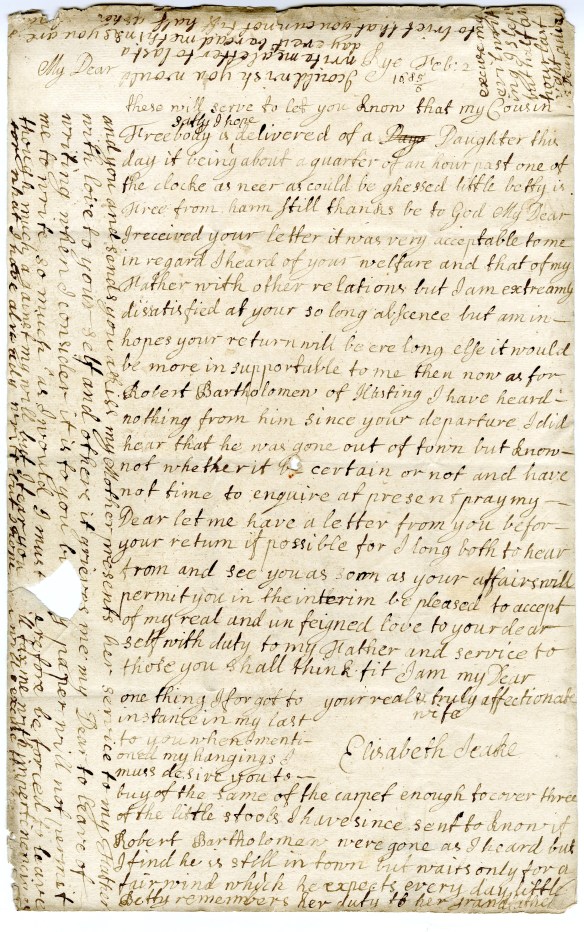 My Dear
Rye Feb: 2
1685/6
these will serve to let you know that my Cousin
safely I hope
Freebody is delivered of a Daughter this
day it being about a quarter of an hour past one of
the clocke as neer as could be ghessed little betty is
Free from harm still thanks be to God My Dear
I received your letter it was very acceptable to me
in regard I heard of your welfare and that of my
Father with other relations but I am extreamly
dissatisfied at your so long absence but am in
hopes your return will be ere long else it would
be more insupportable to me then now as for
Robert Bartholomew of Hasting I have heard
nothing from him since your departure I did
hear that he was gone out of town but know
not whether it be certain or not and have
not time to enquire at present pray my
Dear let me have a letter from you befor
your return if possible for I long both to hear
from and see you as soon as your affairs will
permit you in the interim be pleased to accept
of my real and unfeigned love to your dear
self with duty to my Father and service to
those you shall think fit I am my Dear
your real & truly affectionate
wife
Elisabeth Jeake
one thing I forgot to
instance in my last
to you when menti-
oned my hangings I
muss desire you to
buy of the same of the carpet enough to cover three
of the little stools I have since sent to know if
Robert Bartholomew were gone as I heard but
I find he is still in town but waits only for a
fair wind which he expects every day little
Betty remembers her duty to her grandfather
and you and sends you a kiss my Mother presents her service to my Father
with love to your self and others it grieves me my Dear to leave of
writing when I consider it is to you but my paper will not permit
me to write so much as I would I must therefore be forced to leave
though much against my will but
I could wish you would
write me a letter to last a
day ever to be read
excuse my